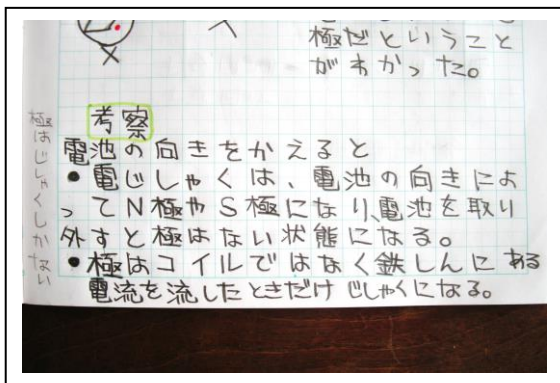 極だということ
がわかった。
考察
電池の向きをかえると
●電じしゃくは、電池の向きによ
ってN極やS極になり、電池を取り
外すと極はない状態になる。
●極はコイルではなく鉄しんにある
電流を流したときだけじしゃくになる。
極はじしゃくしかない